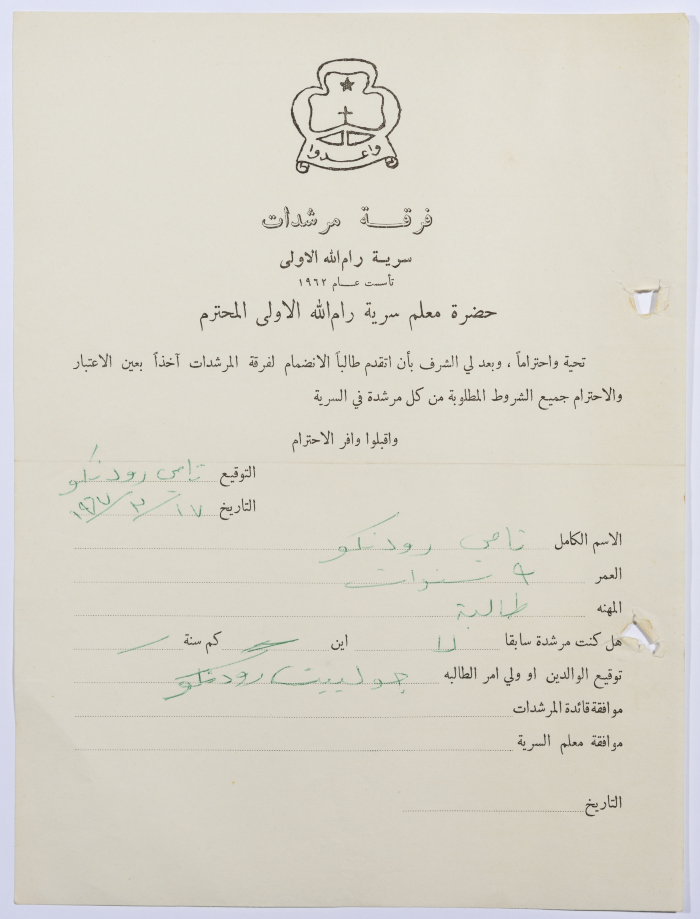 واعدوا
فرقة مرشدات
سرية رام الله الاولى
تأست عام ١٩٦٢
حضرة معلم سرية رام الله الاولى المحترم
تحية واحتراماً ، وبعد لي الشرف بأن اتقدم طالباً الانضمام لفرقة المرشدات آخذاً بعين الاعتبار
والاحترام جميع الشروط المطلوبة من كل مرشدة في السرية
واقبلوا وافر الاحترام
التوقيع تامي رودنكو
التاريخ ١٧/٣/١٩٦٧
الاسم الكامل تامي رودنكو
العمر ٩ سنوات
المهنه طالبة
هل كنت مرشدة سابقا لا اين كم سنة
توقيع الوالدين او ولي امر الطالبه جولييت رودنكو
موافقة قائدة المرشدات
موافقة معلم السرية
التاريخ